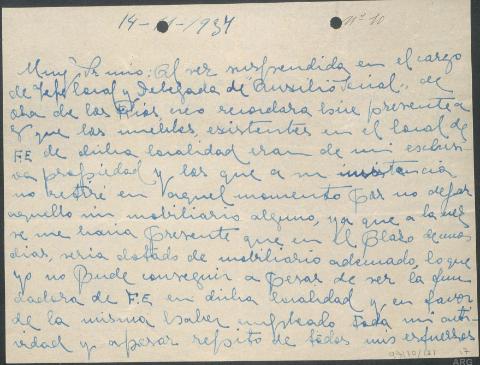 14-11-1937 nº 10
Muy Sr. mio: Al ser suspendida en el cargo
de Jefe local y Delegada de "Auxilio Social", de
de los Rios, creo recordara hice presente a
V. que los muebles existentes en el local de
F.E. de dicha localidad eran de mi exclusi-
va propiedad y los que a su instancia
no retiré en aquel momento por no dejar
aquello sin mobiliario alguno, ya que a la vez
se me hacia presente que en el plazo de unos
dias, seria dotado de mobiliario adecuado, lo que
yo no pude conseguir a pesar de ser la fun
dadora de F.E. en dicha localidad y, en favor
de la misma haber empleado toda mi acti-
vidad y a pesar repito de todos mis esfuerzos
17
ARG